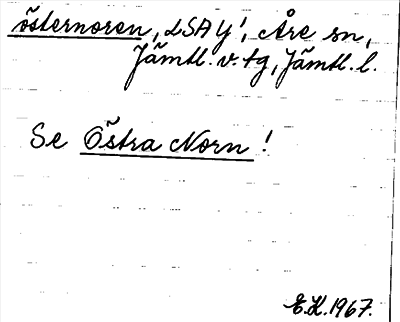 östernoren, LSA Y!, Åre sn,
Jämtl. v. tg, Jämtl. l.
Se Östra Norn!
E.K. 1967.